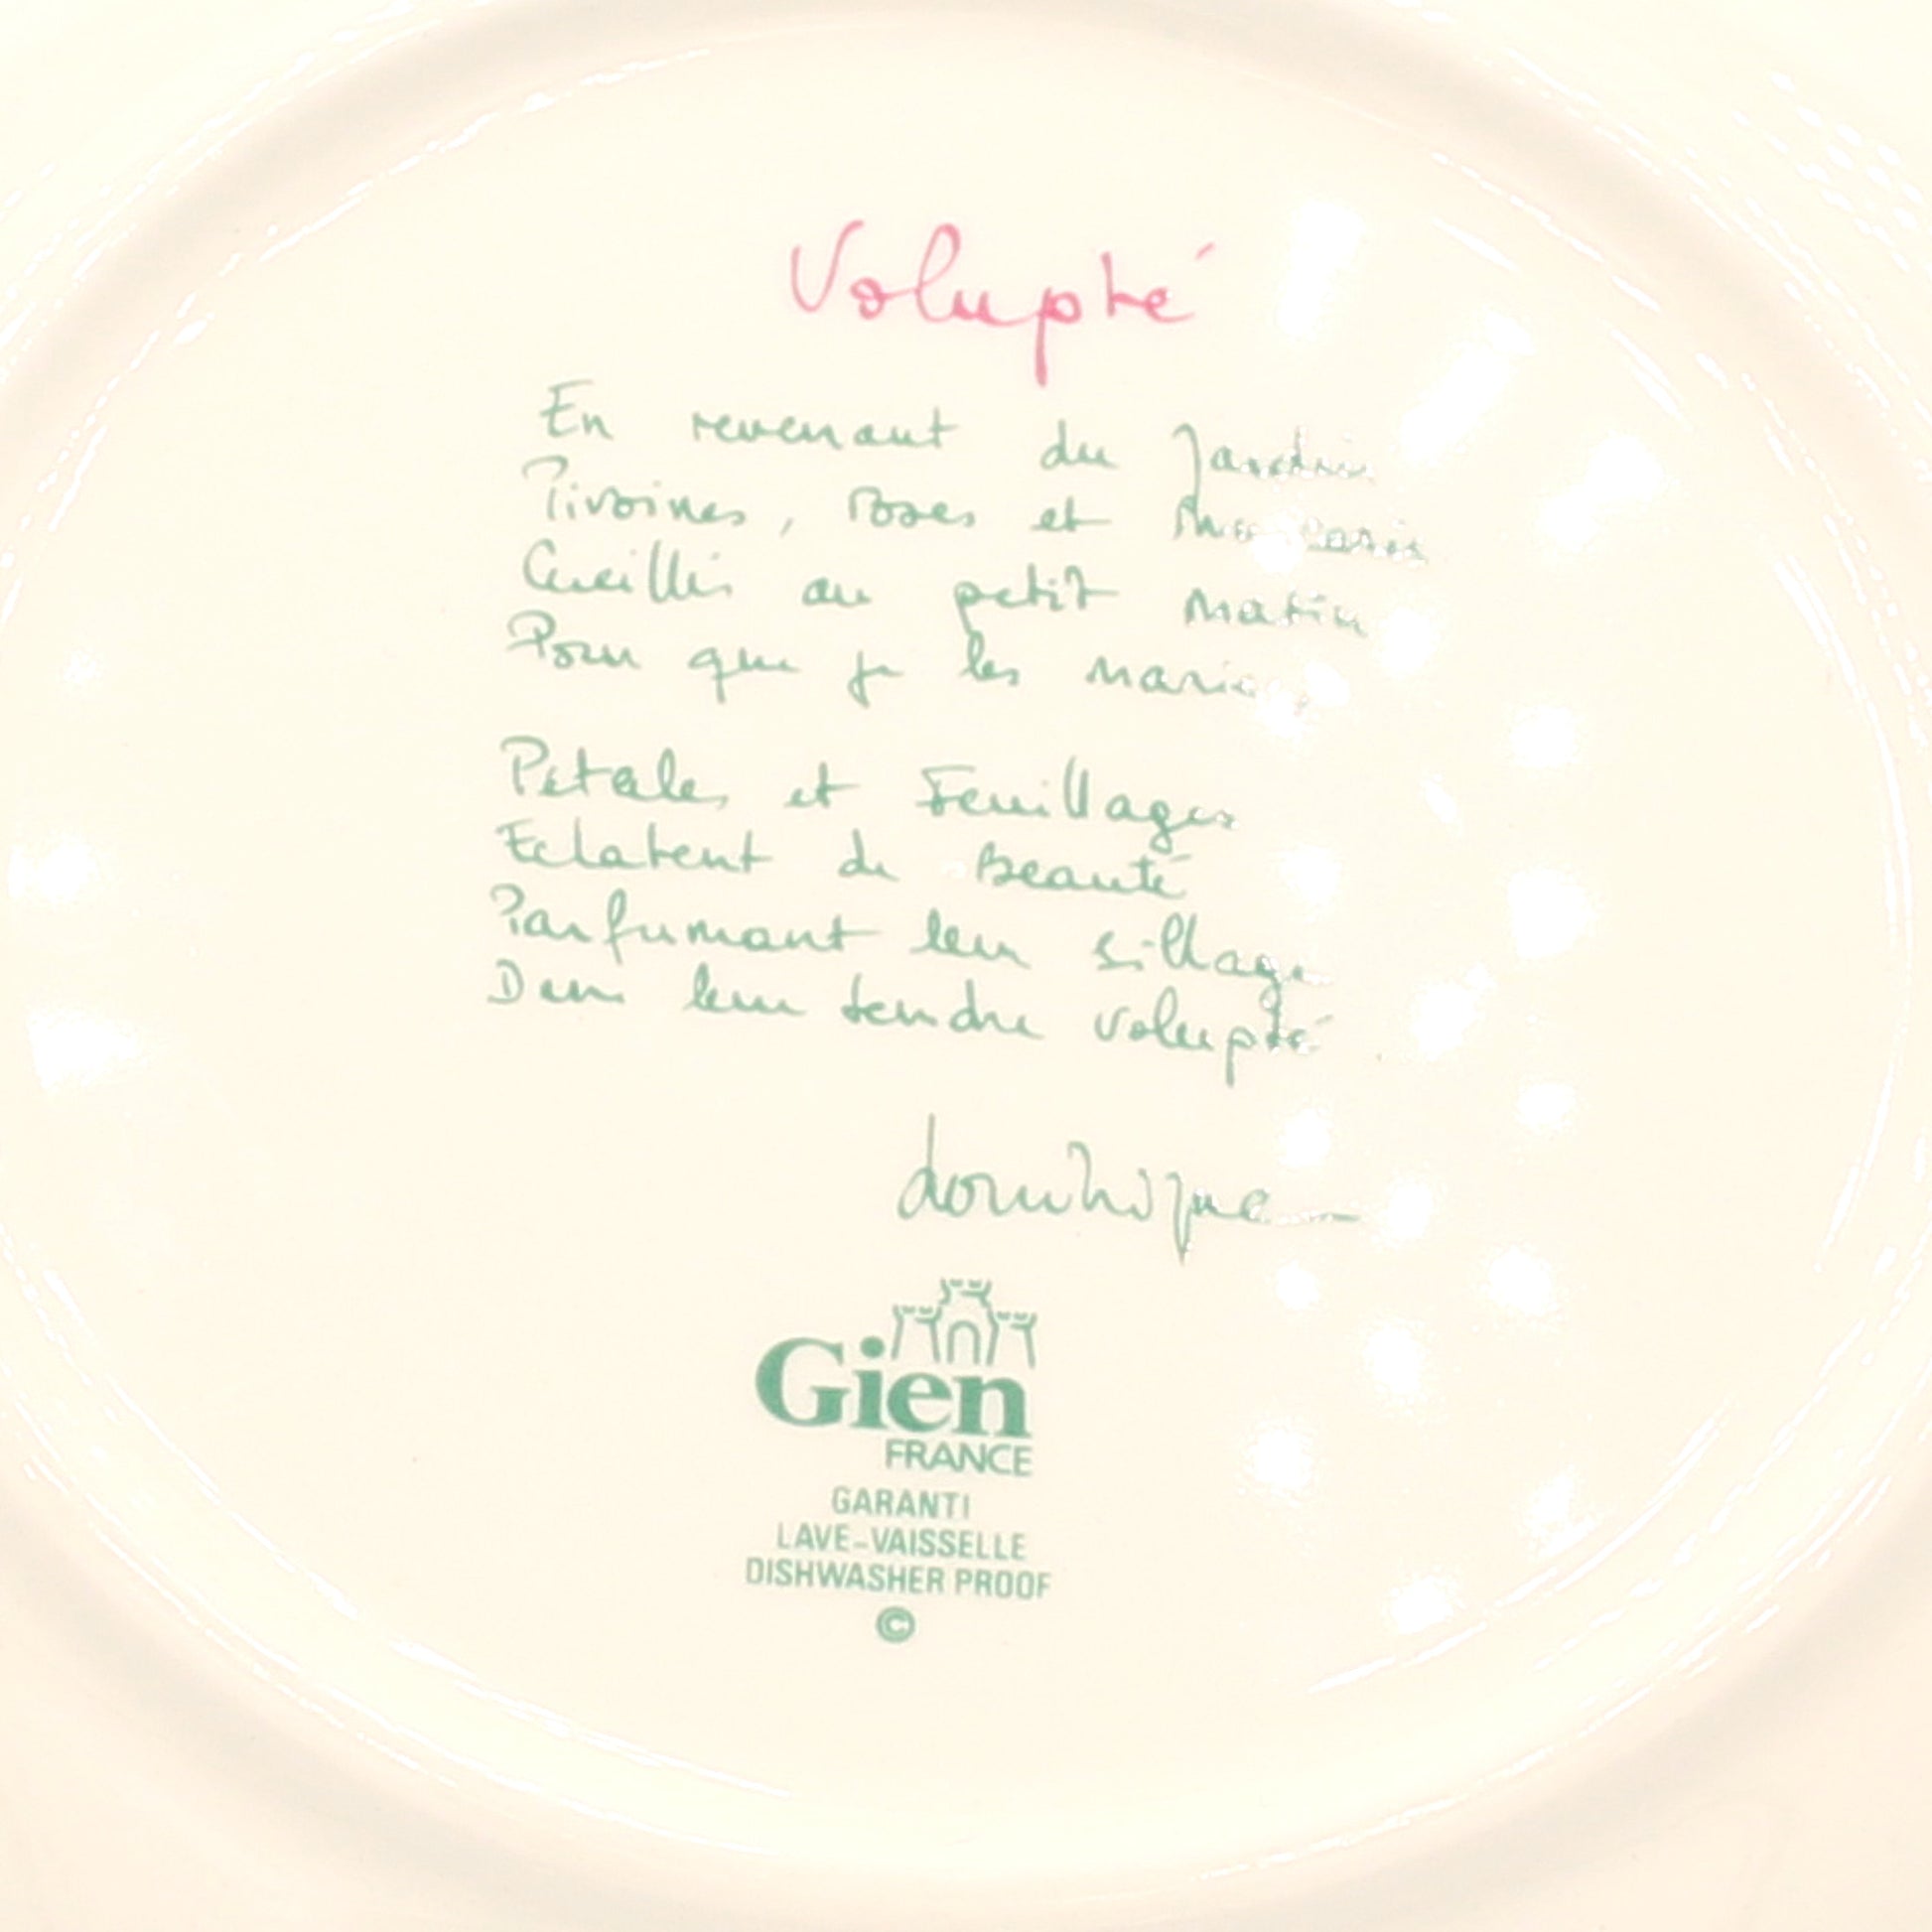 Volupté
En revenant du Jardin
Pivoines, roses et Muscaris
Cueillis au petit matin
Pour que je les marie,
Petales et Feuillages
Eclatent de Beauté
Parfumant leur sillage
Dans leur tendre volupté.
dominique
Gien
FRANCE
GARANTI
LAVE-VAISSELLE
DISHWASHER PROOF
©